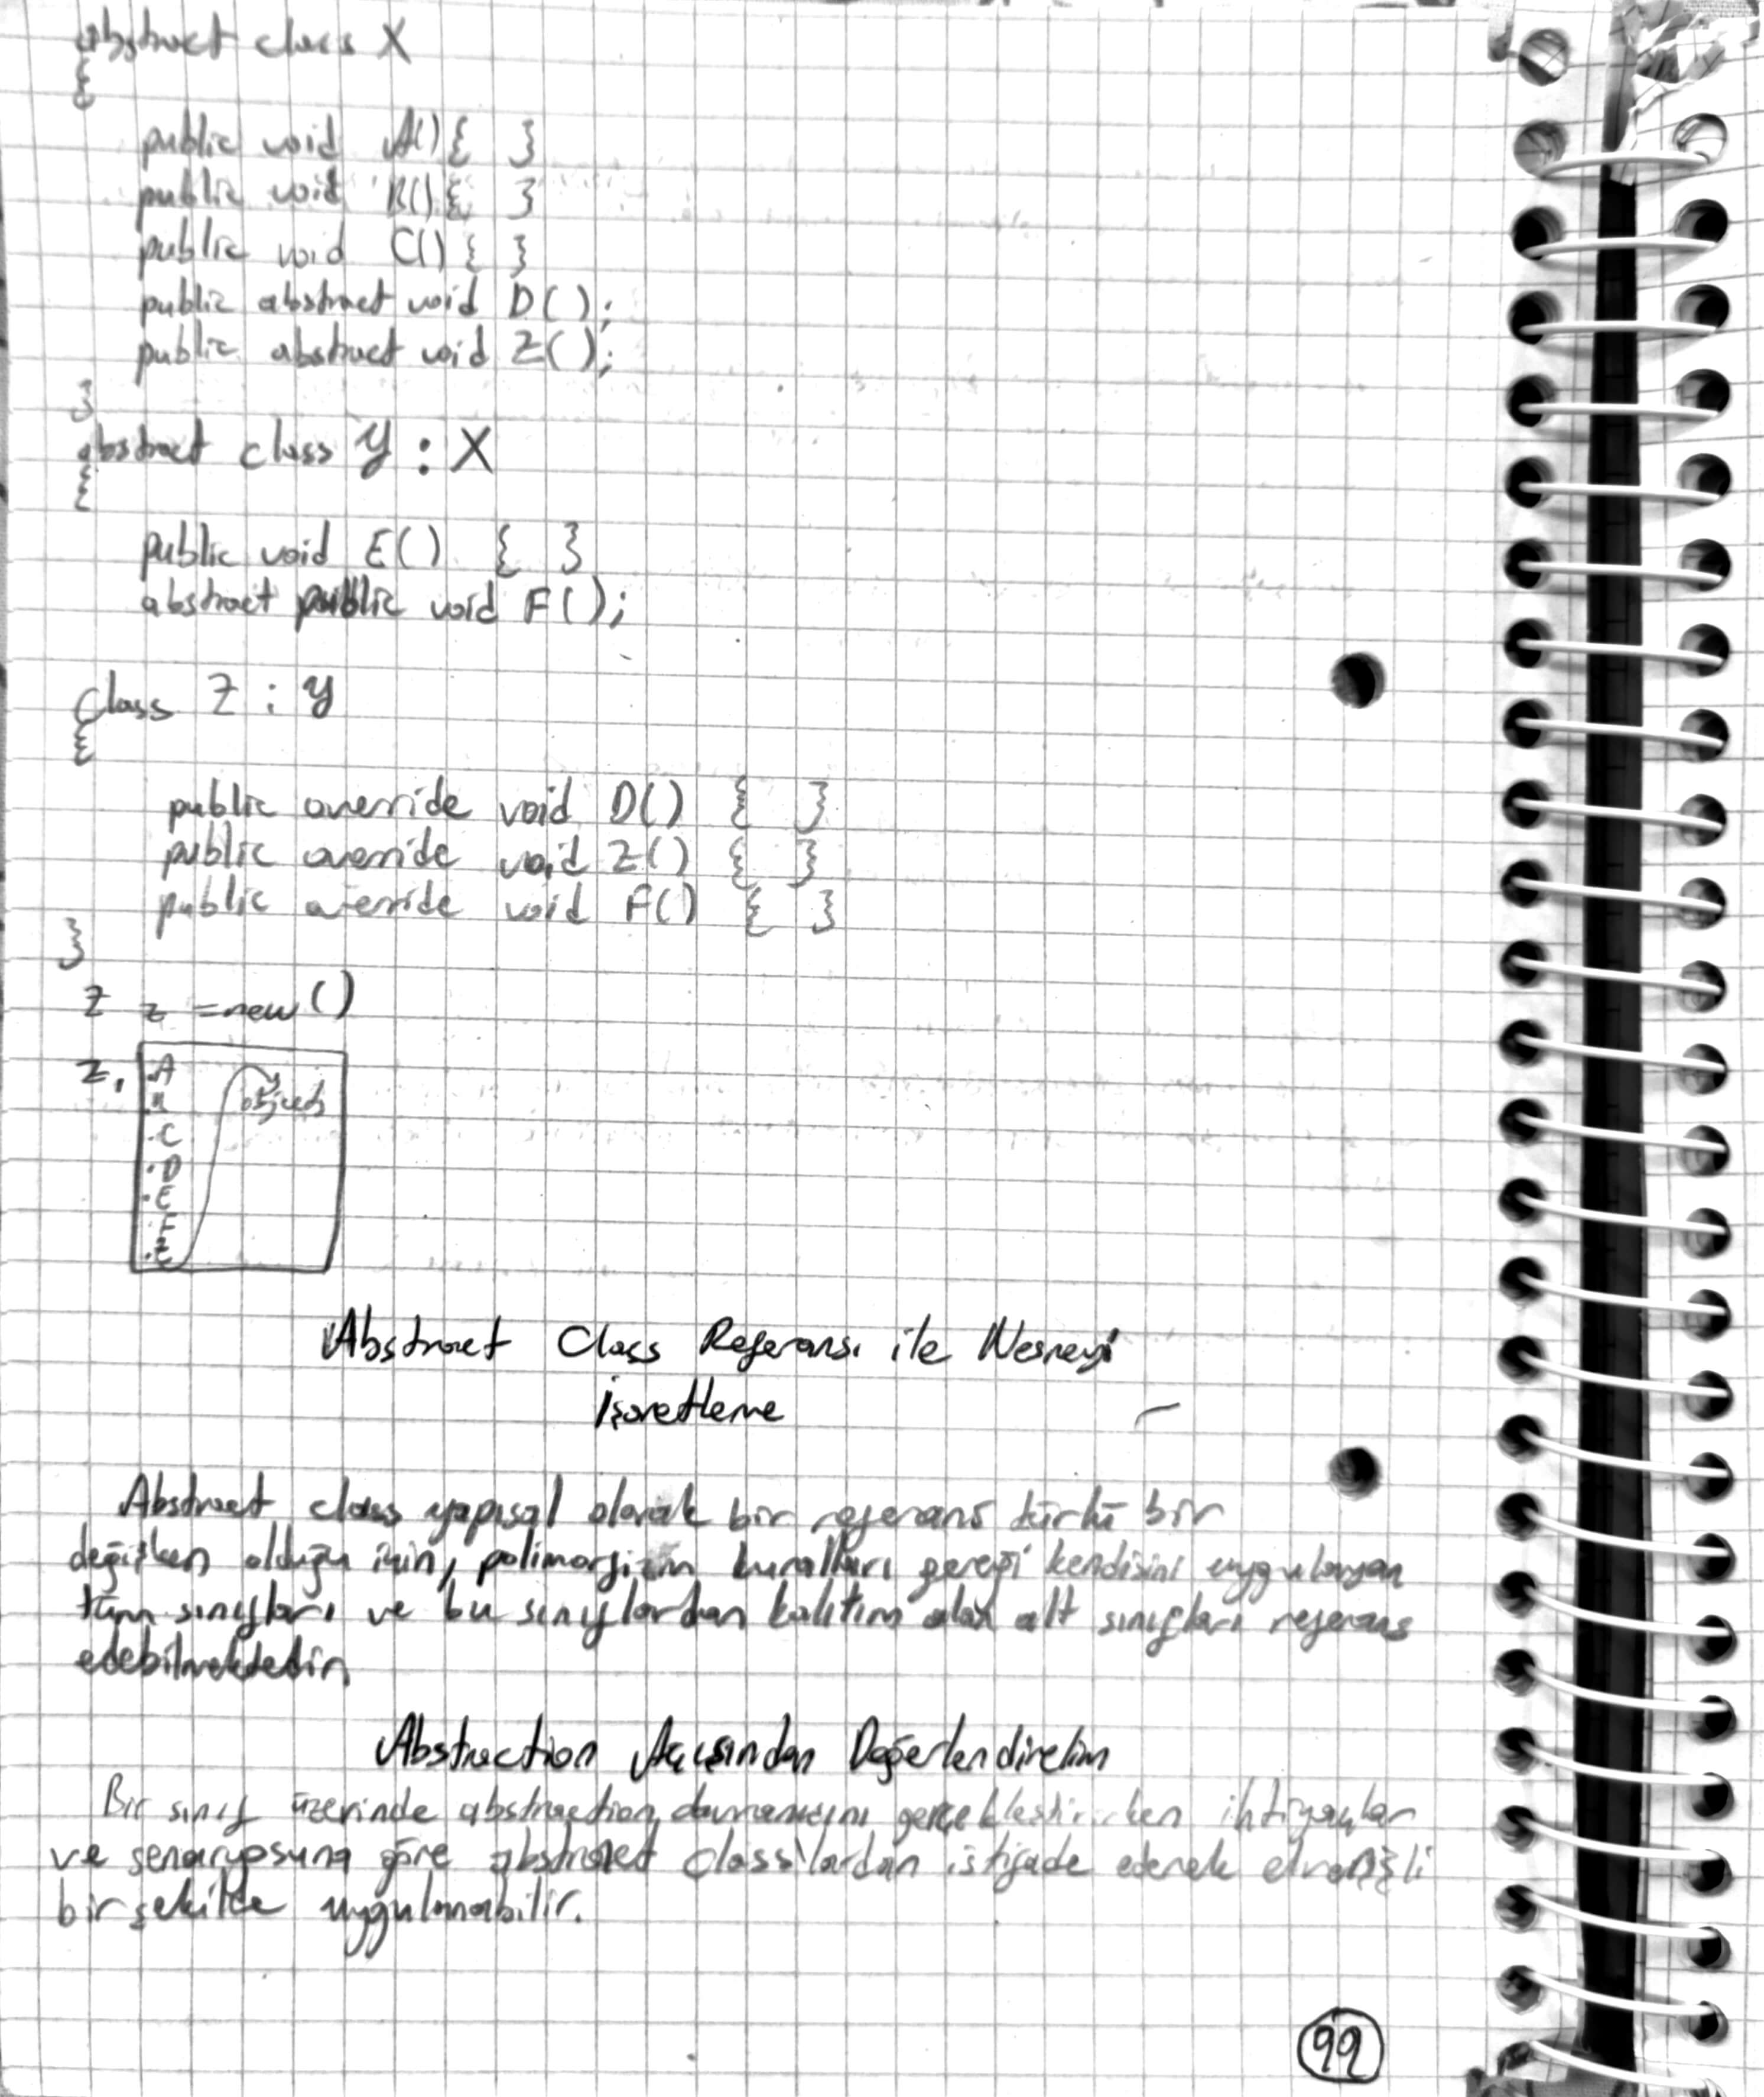 abstract class X
{
public void A() { }
public void B() { }
public void C() { }
public abstract void D();
public abstract void Z();
}
abstract class Y : X
{
public void E() { }
abstract public void F();
class Z : Y
{
public override void D() { }
public override void Z() { }
public override void F() { }
}
Z z = new()
z.
.A
.B
.C
.D
.E
.F
.Z
Abstract Class Referansı ile Nesneyi
İşaretleme
Abstract class yapısal olarak bir referans türlü bir
değişken olduğu için, polimorfizm kuralları gereği kendisini uygulayan
tüm sınıfları ve bu sınıflardan kalıtım alan alt sınıfları referans
edebilmektedir.
Abstraction Açısından Değerlendirelim
Bir sınıf üzerinde abstraction davranışını gerçekleştirirken ihtiyaçlar
ve senaryosuna göre abstract class'lardan istifade ederek elverişli
bir şekilde uygulanabilir.
99